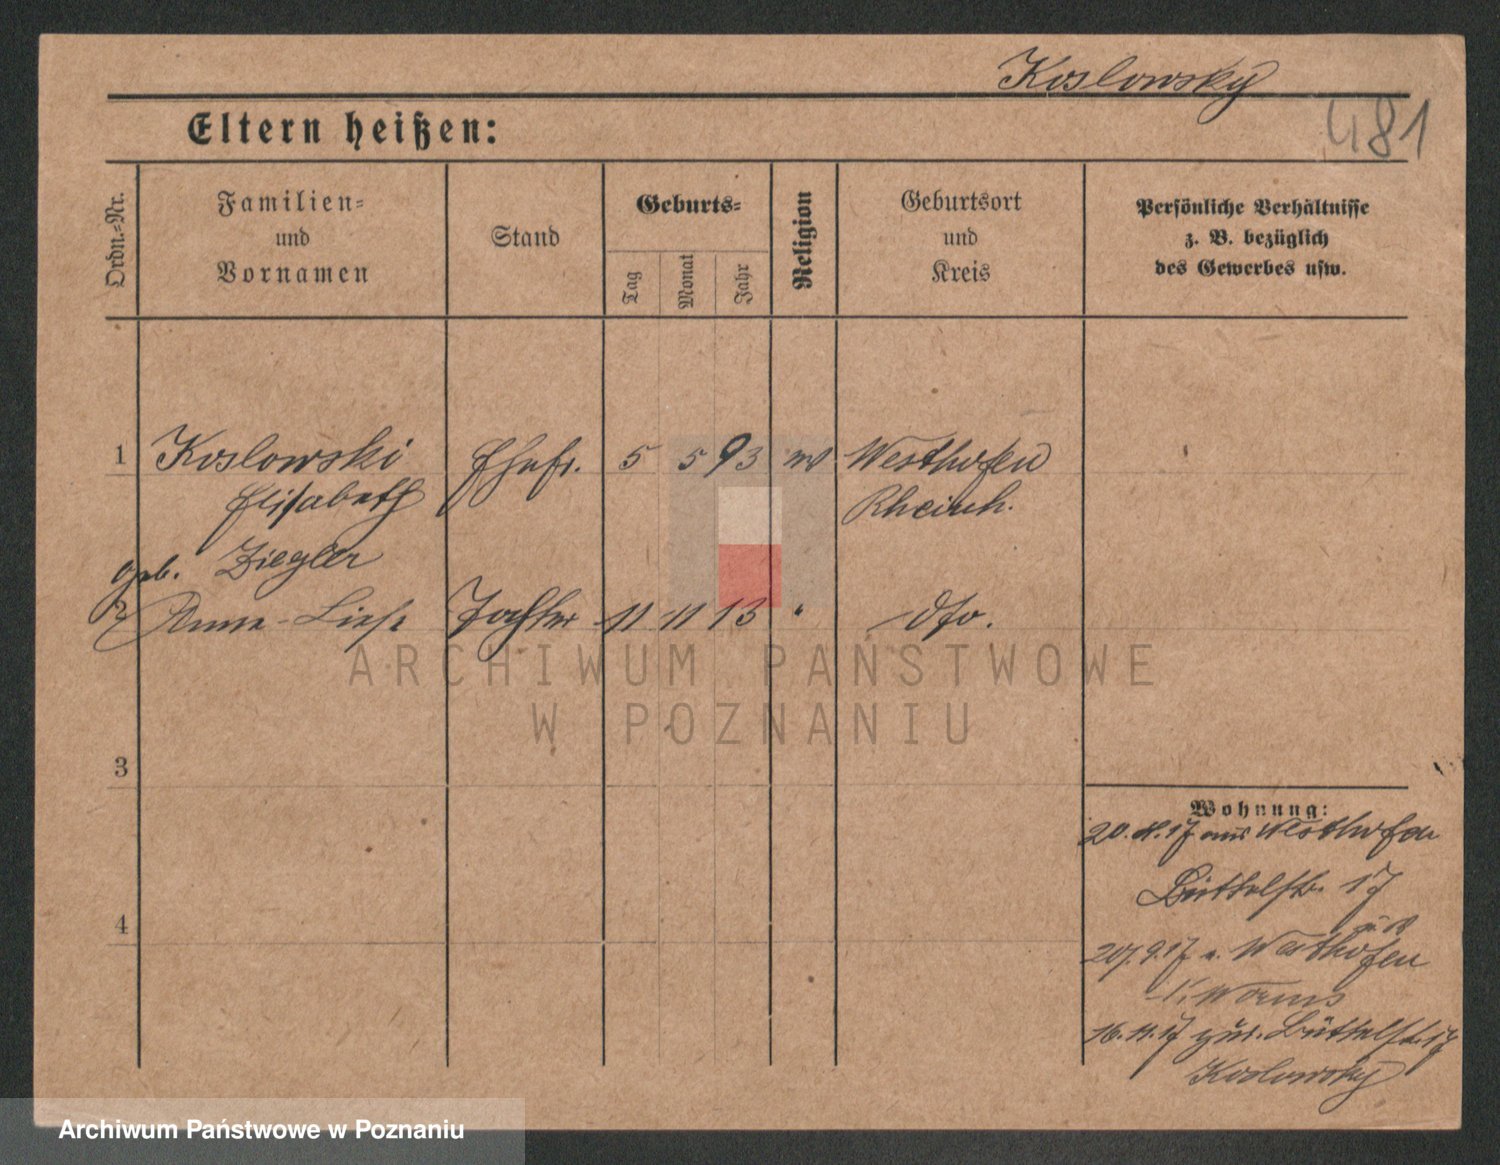 Koslowsky
481
Eltern heißen:
Ordn.-Nr.
Familien-
und
Vornamen
Stand
Geburts-
Tag
Monat
Jahr
Religion
Geburtsort
und
Kreis
Persönliche Verhältnisse
z. B. bezüglich
des Gewerbes usw.
1 Koslowski Ehefr. 5 5 93 Westhofen
Elisabeth Rheinh.
geb. Ziegler
2 Anna-Liese Tochter 11 11 13 " dto.
3
4
Wohnung:
20. 8. 17 aus Westhofen
Büttelstr. 17
9. 17 n. Westhofen
K. Worms
16. 11. 17 zur. Büttelstr. 17
Koslowsky
ARCHIWUM PAŃSTWOWE
W POZNANIU
Archiwum Państwowe w Poznaniu